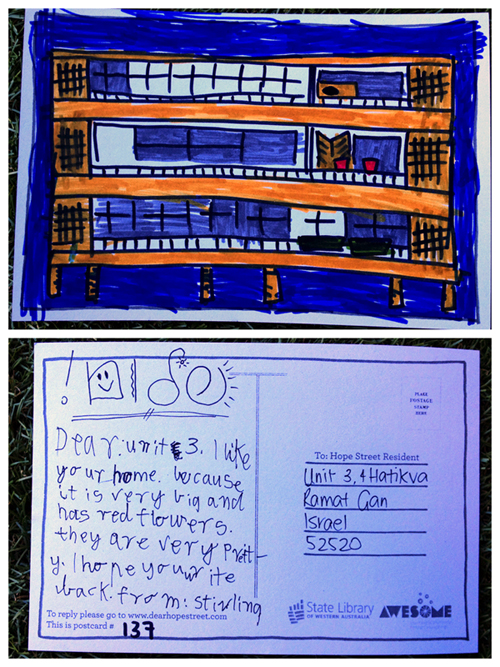 Dear: unit 3. I like
your home. because
it is very big and
has red flowers.
they are very Prett
y. I hope you write
back. from: Stirling
To reply please go to www.dearhopestreet.com
This is postcard # 137
PLACE
POSTAGE
STAMP
HERE
To: Hope Street Resident
Unit 3, 4 Hatikva
Ramat Gan
Israel
52520
State Library
OF WESTERN AUSTRALIA
AWESOME